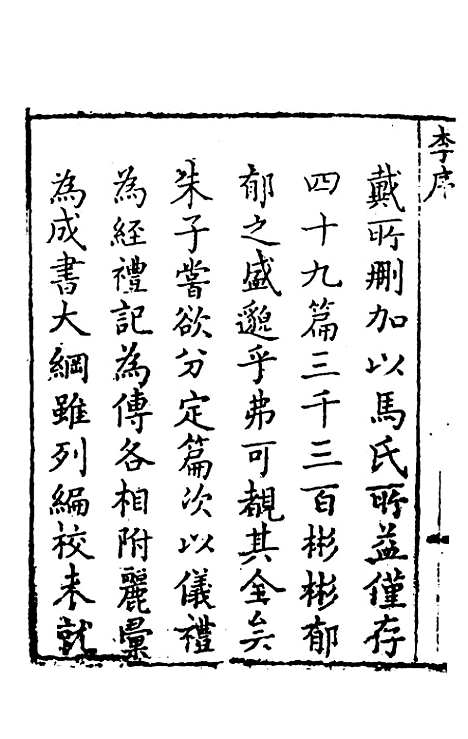 李序
戴所刪加以馬氏所益僅存
四十九篇三千三百彬彬郁
郁之盛邈乎弗可覩其全矣
朱子嘗欲分定篇次以儀禮
為經禮記為傳各相附麗彙
為成書大綱雖列編校未就